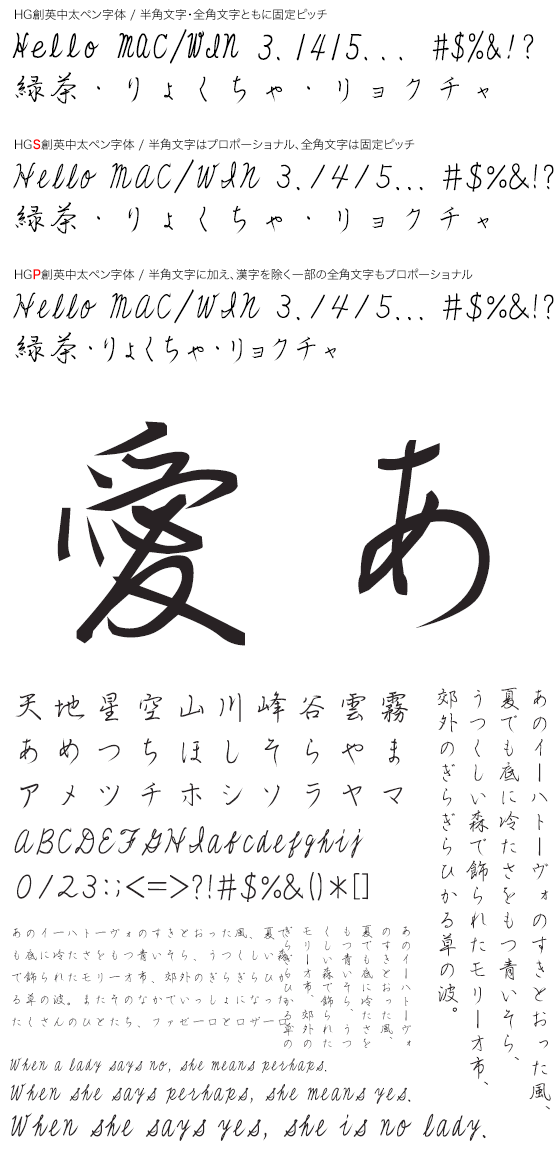 HG創英中太ペン字体 / 半角文字・全角文字ともに固定ピッチ
Hello MAC/WIN 3.1415... #$%&!?
緑茶・りょくちゃ・リョクチャ
HGS創英中太ペン字体 / 半角文字はプロポーショナル、全角文字は固定ピッチ
Hello MAC/WIN 3.1415... #$%&!?
緑茶・りょくちゃ・リョクチャ
HGP創英中太ペン字体 / 半角文字に加え、漢字を除く一部の全角文字もプロポーショナル
Hello MAC/WIN 3.1415... #$%&!?
緑茶・りょくちゃ・リョクチャ
愛 あ
天地星空山川峰谷雲霧
あめつちほしそらやま
アメツチホシソラヤマ
ABCDEFGHIabcdefghij
0123:;<=>?!#$%&()*[]
あのイーハトーヴォのすきとおった風、
夏でも底に冷たさをもつ青いそら、
うつくしい森で飾られたモリーオ市、
郊外のぎらぎらひかる草の波。
あのイーハトーヴォのすきとおった風、夏で
も底に冷たさをもつ青いそら、うつくしい森
で飾られたモリーオ市、郊外のぎらぎらひか
る草の波。またそのなかでいっしょになった
たくさんのひとたち、ファゼーロとロザーロ
あのイーハトーヴォ
のすきとおった風、
夏でも底に冷たさを
もつ青いそら、うつ
くしい森で飾られた
モリーオ市、郊外の
ぎらぎらひかる草の
When a lady says no, she means perhaps.
When she says perhaps, she means yes.
When she says yes, she is no lady.